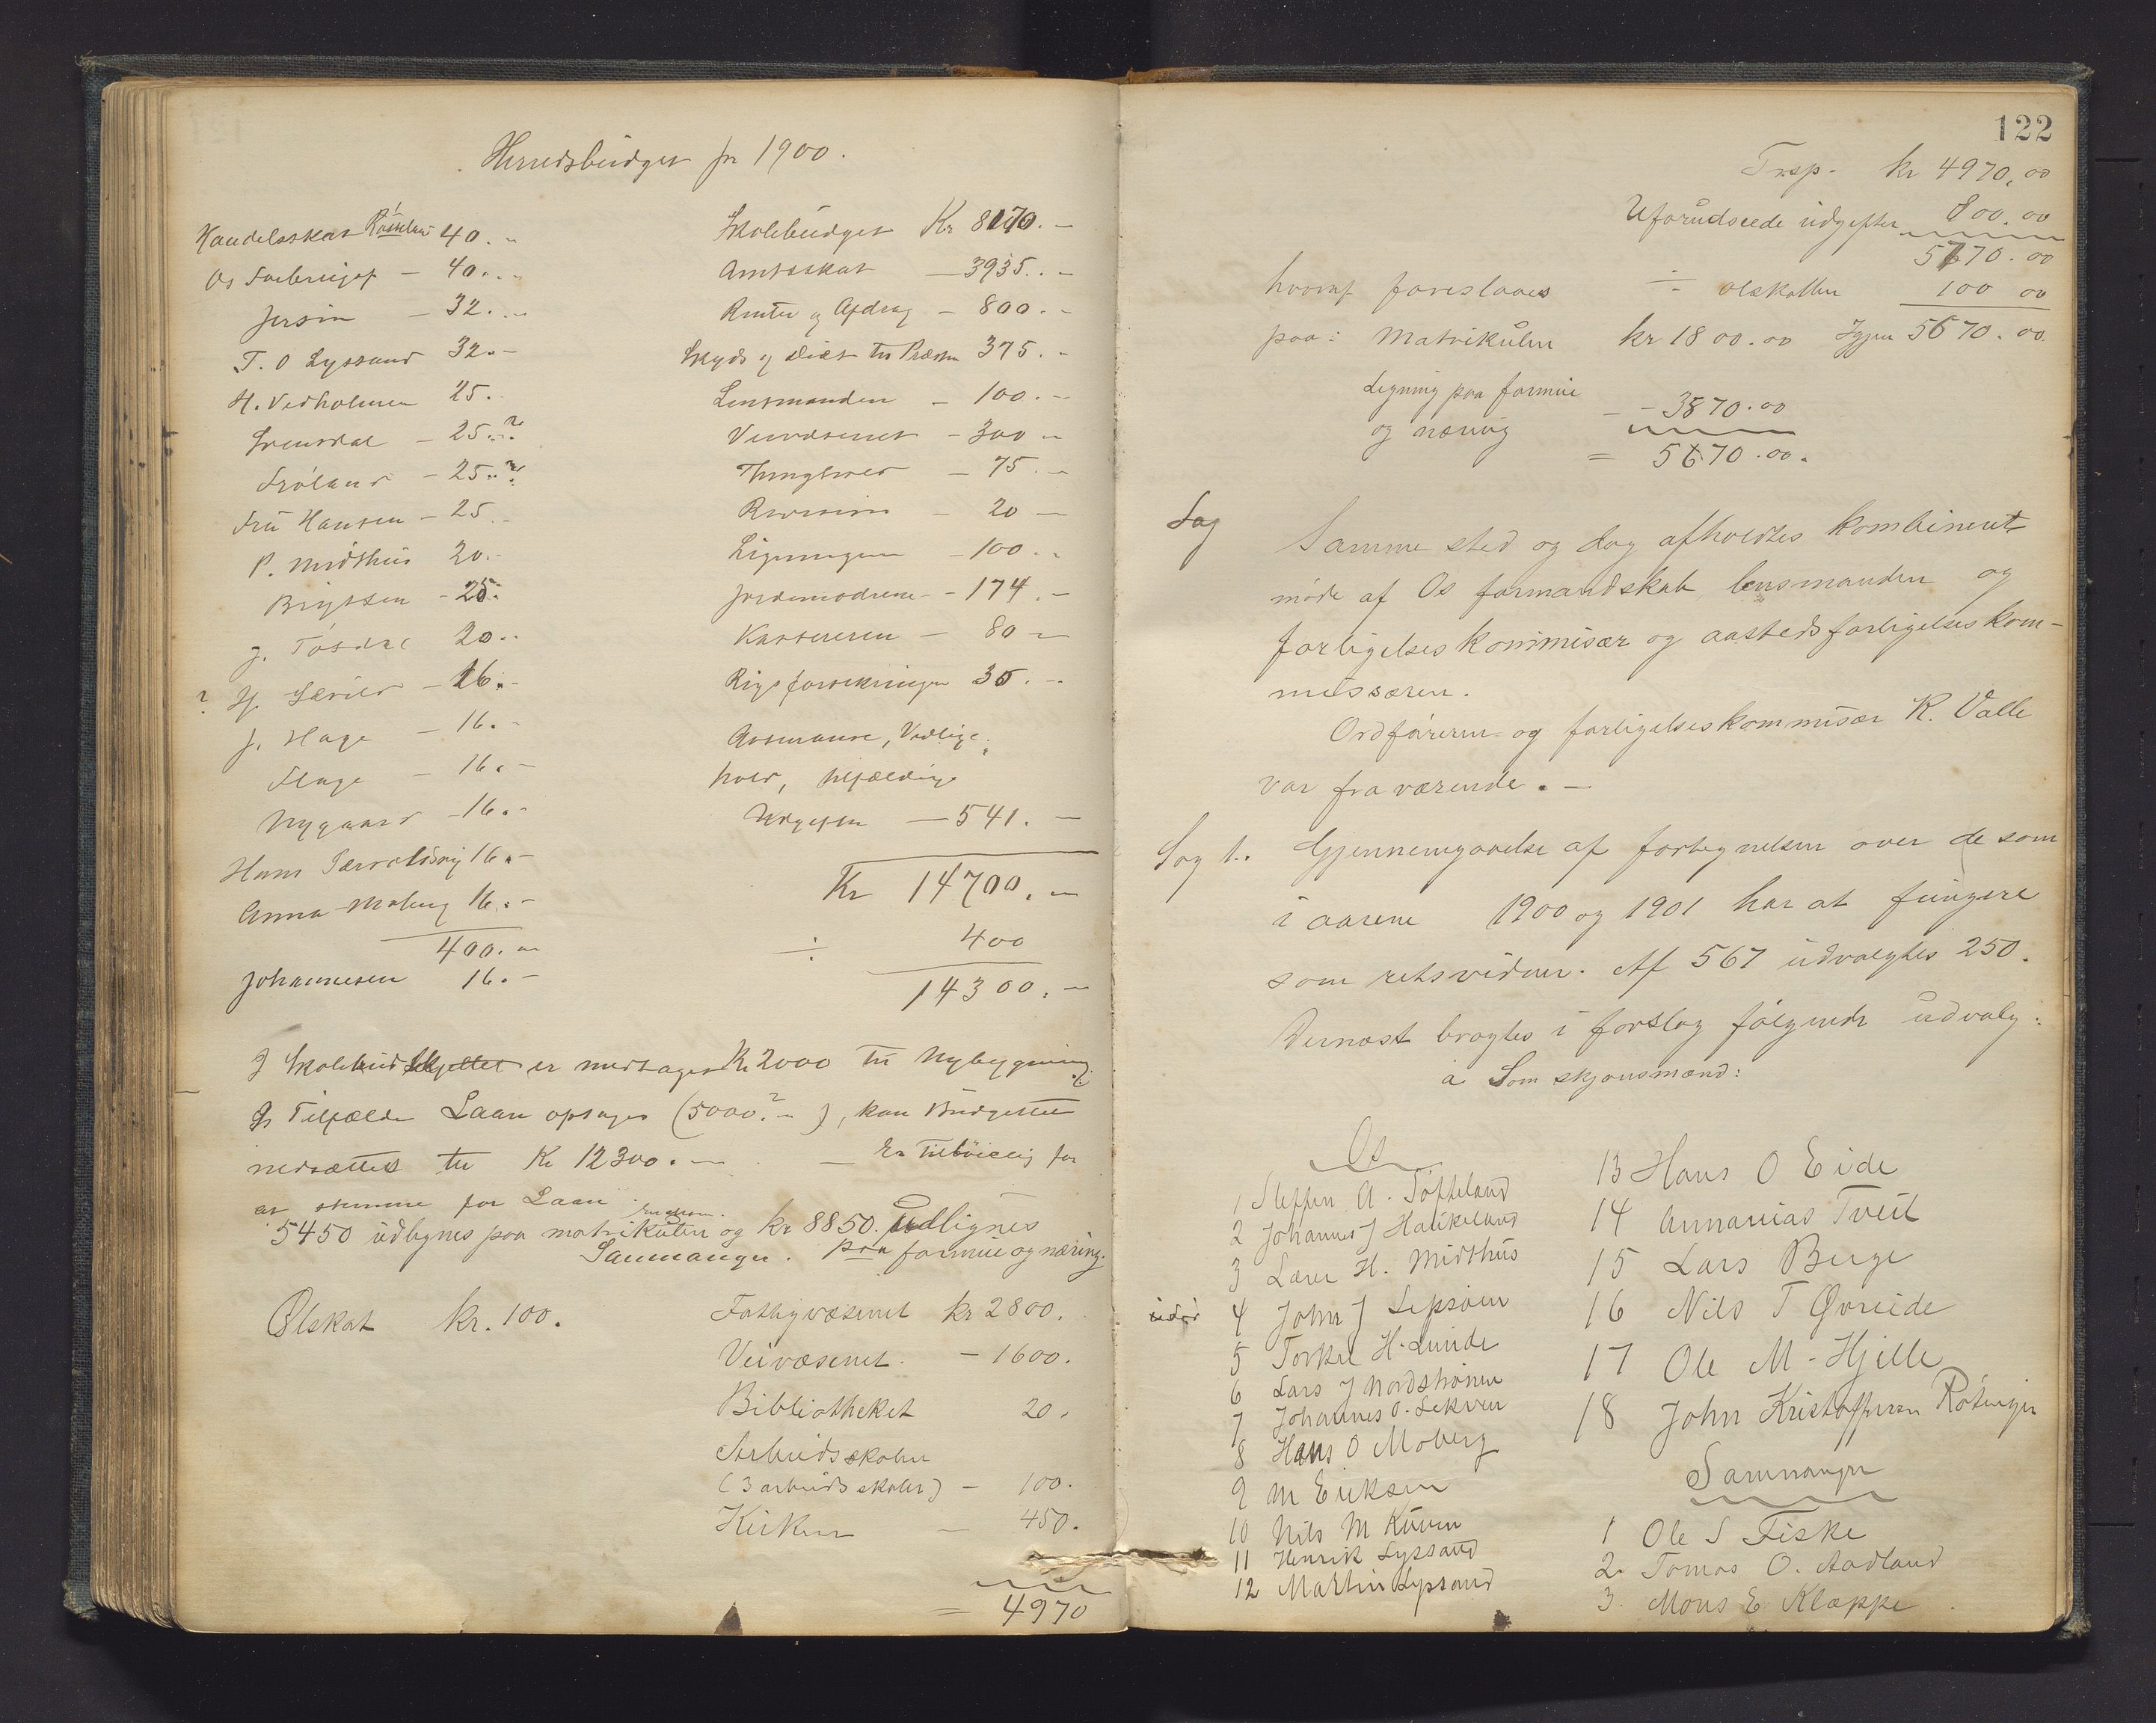 Herredsbudget for 1900.
Handelsskat 40.-
Os 40.-
Jersin - 32.-
T. O Lyssand 32.-
H. Vedholmen 25.
- 25.-?
Fröland - 25.-?
Fru Hansen - 25.-
P. Midthus 20.-
- 25.-
J. Tösdal 20.-
? - 16.-
J. Hage - 16.-
Flage - 16.-
Nygaard - 16.-
Hans 16.-
Anna Moberg 16.-
400.-
Johannesen 16.-
Skolebudget Kr 8170.-
Amtsskat - 3935.-
Renter og Afdrag - 800.-
Skyds og Diæt til Præsten 375.-
Lensmanden - 100.-
Veivæsenet - 300.-
Thinglokal - 75.-
Revision - 20.-
Ligningen - 100.-
Jordemodrene - 174.-
Kassereren - 80.-
Rigsforsikringen 30.-
Avismaure, Vedlige-
hold, tilfældige
Udgifter - 541.-
Kr 14700.-
÷ 400
14300.-
I Skolebudgettet er medtaget Kr 2000 til Nybygning.
I Tilfælde Laan optages (5000?-), kan Budgettet
nedsættes til Kr 12300.- - Er tilbøielig for
at stemme for Laan.
5450 udlignes paa matrikulen og kr 8850. udlignes
Samnanger. paa formue og næring.
Ølskat kr. 100.
Fattigvæsenet kr 2800.
Veivæsenet - 1600.
Bibliotheket 20.
Arbeidsskolen
(3 arbeidsskoler) - 100.
Kirken - 450.
= 4970
122
Trsp. kr 4970,00
Uforudseede udgifter 800.00
5770.00
hvoraf foreslaaes ÷ ølskatten 100 00
paa: Matrikulen kr 1800.00 Igjen 5670.00
Ligning paa formue
og næring - 3870.00
= 5670.00.
Sag
Samme sted og dag afholdtes kombineret
møde af Os formandskab lensmanden og
forligelseskommisær og aastedsforligelseskom-
missæren.
Ordføreren og forligelseskommisær K. Valle
var fraværende. -
Sag 1. Gjennemgaaelse af fortegnelsen over de som
i aarene 1900 og 1901 har at fungere
som retsvidner. Af 567 udvalgtes 250.
Dernæst bragtes i forslag følgende udvalg:
a Som skjønsmænd:
Os
1 Steffen A. Söfteland
2 Johannes J Haukeland
3 Lars H. Midthus
4 John J Lepsöen
5 Torkel H. Lunde
6 Lars J Nordströnen
7 Johannes O. Lekven
8 Hans O Moberg
9 M Eriksen
10 Nils M Kuven
11 Henrik Lyssand
12 Martin Lyssand
13 Hans O Eide
14 Annanias Tveit
15 Lars Berge
16 Nils T Øvreide
17 Ole M. Hjelle
18 John Kristoffersen Rötinga
Samnanger
1 Ole S Tiske
2. Tomas O. Aadland
3. Mons E Klæppe